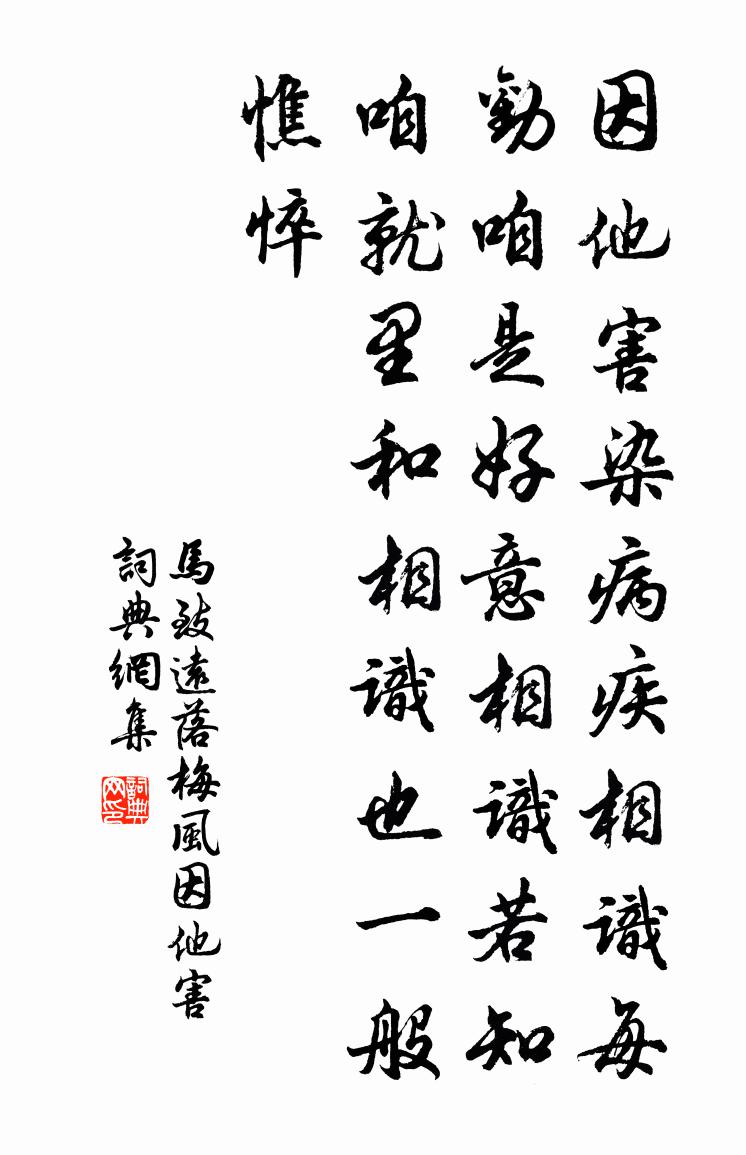 因他害染病疾相識每
勸咱是好意相識若知
咱就里和相識也一般
憔悴
馬致遠落梅風因他害
詞典網集
詞典
网印